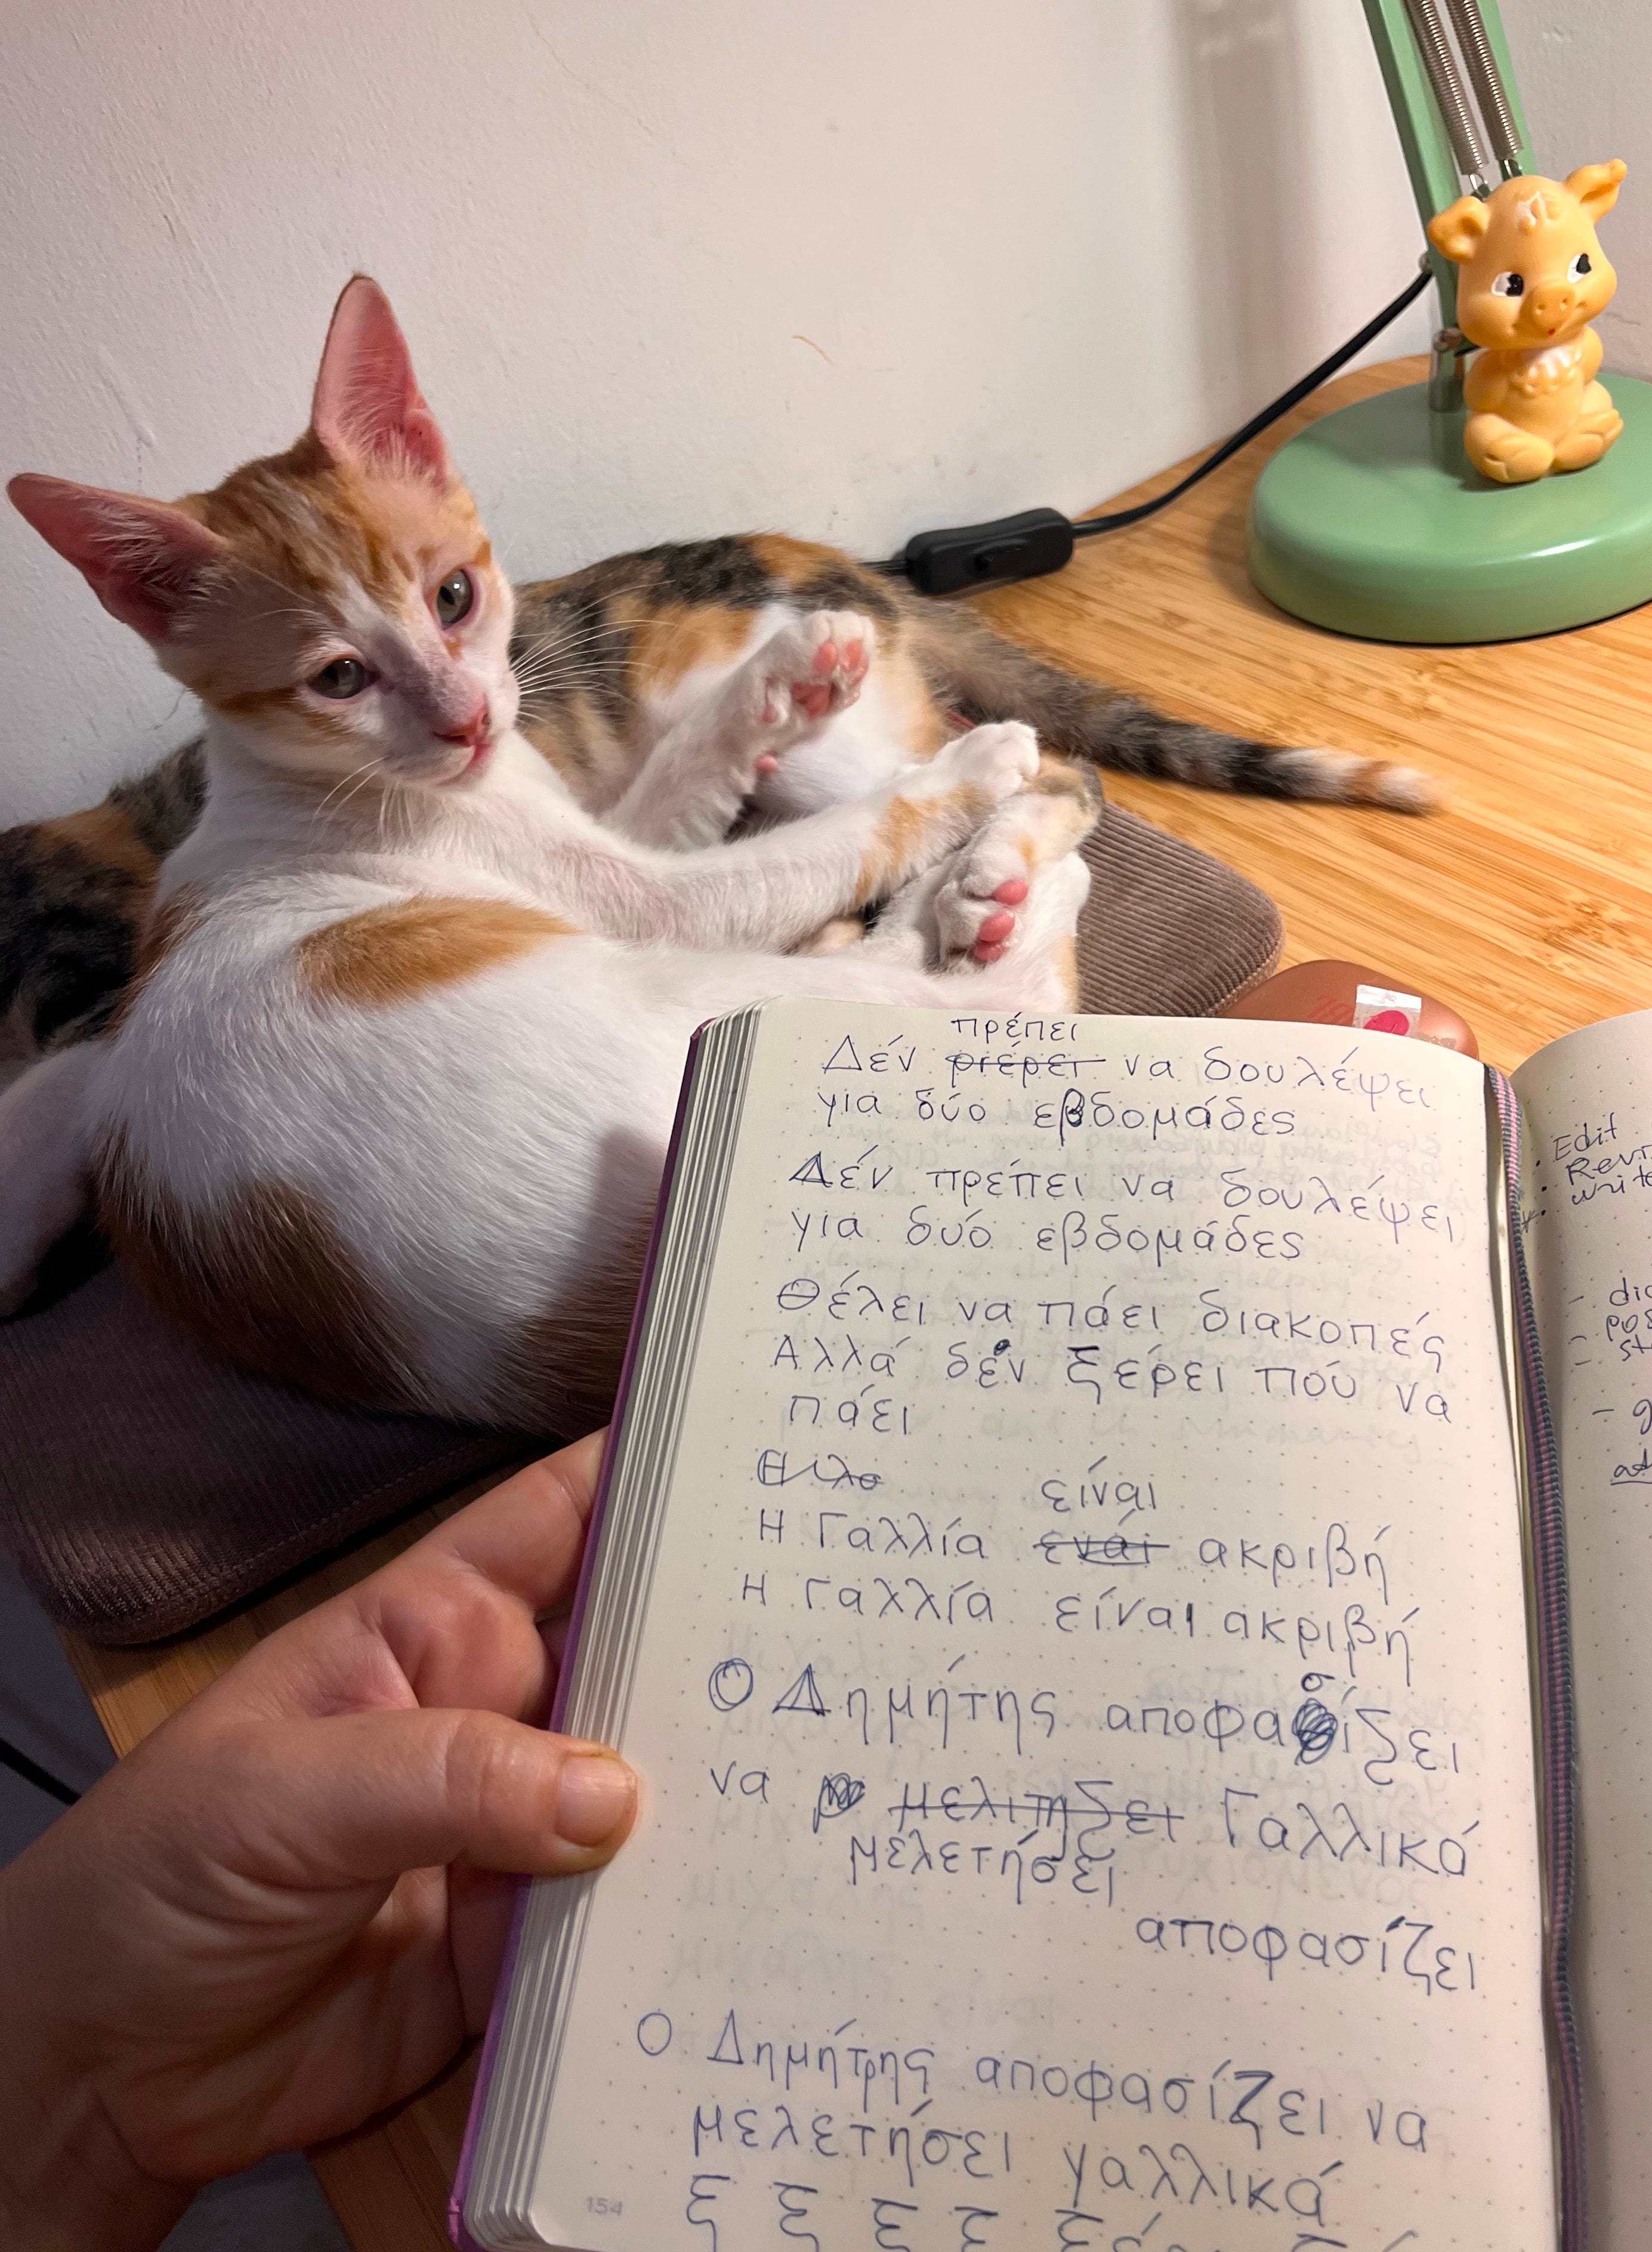 πρέπει
Δέν ριέρει να δουλέψει
για δύο εβδομάδες
Δέν πρέπει να δουλέψει
για δύο εβδομάδες
Θέλει να πάει διακοπές
Αλλά δέν ξέρει πού να
πάει
είναι
Η Γαλλία ενάι ακριβή
Η Γαλλία είναι ακριβή
σ
Ο Δημήτης αποφασίζει
να Γαλλικά
μελετήσει
αποφασίζει
Ο Δημήτρης αποφασίζει να
μελετήσει γαλλικά
ξ ξ ξ ξ
154
Edit
write